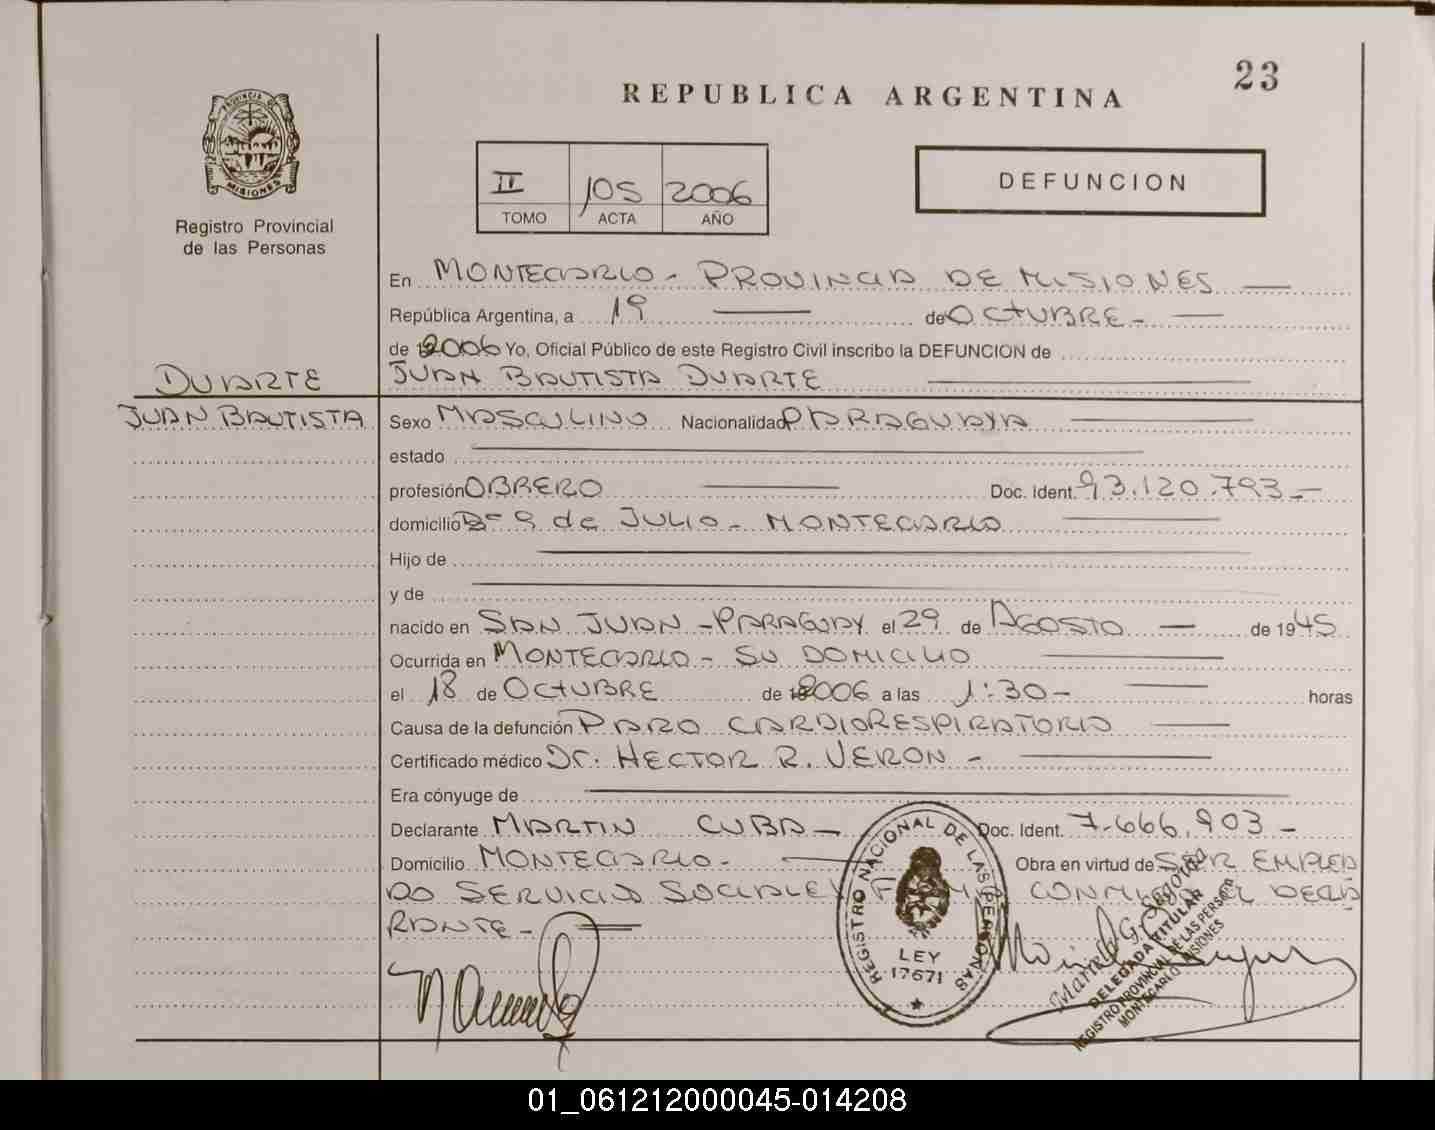 23
REPUBLICA ARGENTINA
PROVINCIA DE
MISIONES
Registro Provincial
de las Personas
II 105 2006
TOMO ACTA AÑO
DEFUNCION
En MONTECARLO - PROVINCIA DE MISIONES
República Argentina, a 19 de OCTUBRE -
de 2006 Yo, Oficial Público de este Registro Civil inscribo la DEFUNCION de
DUARTE JUAN BAUTISTA DUARTE
JUAN BAUTISTA Sexo MASCULINO Nacionalidad PARAGUAYA
estado
profesión OBRERO Doc. Ident. 93.120.793 -
domicilio Bº 9 de JULIO - MONTECARLO
Hijo de
y de
nacido en SAN JUAN - PARAGUAY el 29 de AGOSTO - de 1945
Ocurrida en MONTECARLO - SU DOMICILIO
el 18 de OCTUBRE de 2006 a las 1:30 - horas
Causa de la defunción PARO CARDIORESPIRATORIO
Certificado médico Dr. HECTOR R. VERON -
Era cónyuge de
Declarante MARTIN CUBA - Doc. Ident. 7.666.903 -
Domicilio MONTECARLO - Obra en virtud de SER EMPLEA
DO SERVICIO SOCIALEX CONMIGO EL DECLA
RANTE -
REGISTRO NACIONAL DE LAS PERSONAS
LEY
17671
Mariela G. Segovia
DELEGADA TITULAR
REGISTRO PROVINCIAL DE LAS PERSONAS
MONTECARLO MISIONES
01_061212000045-014208